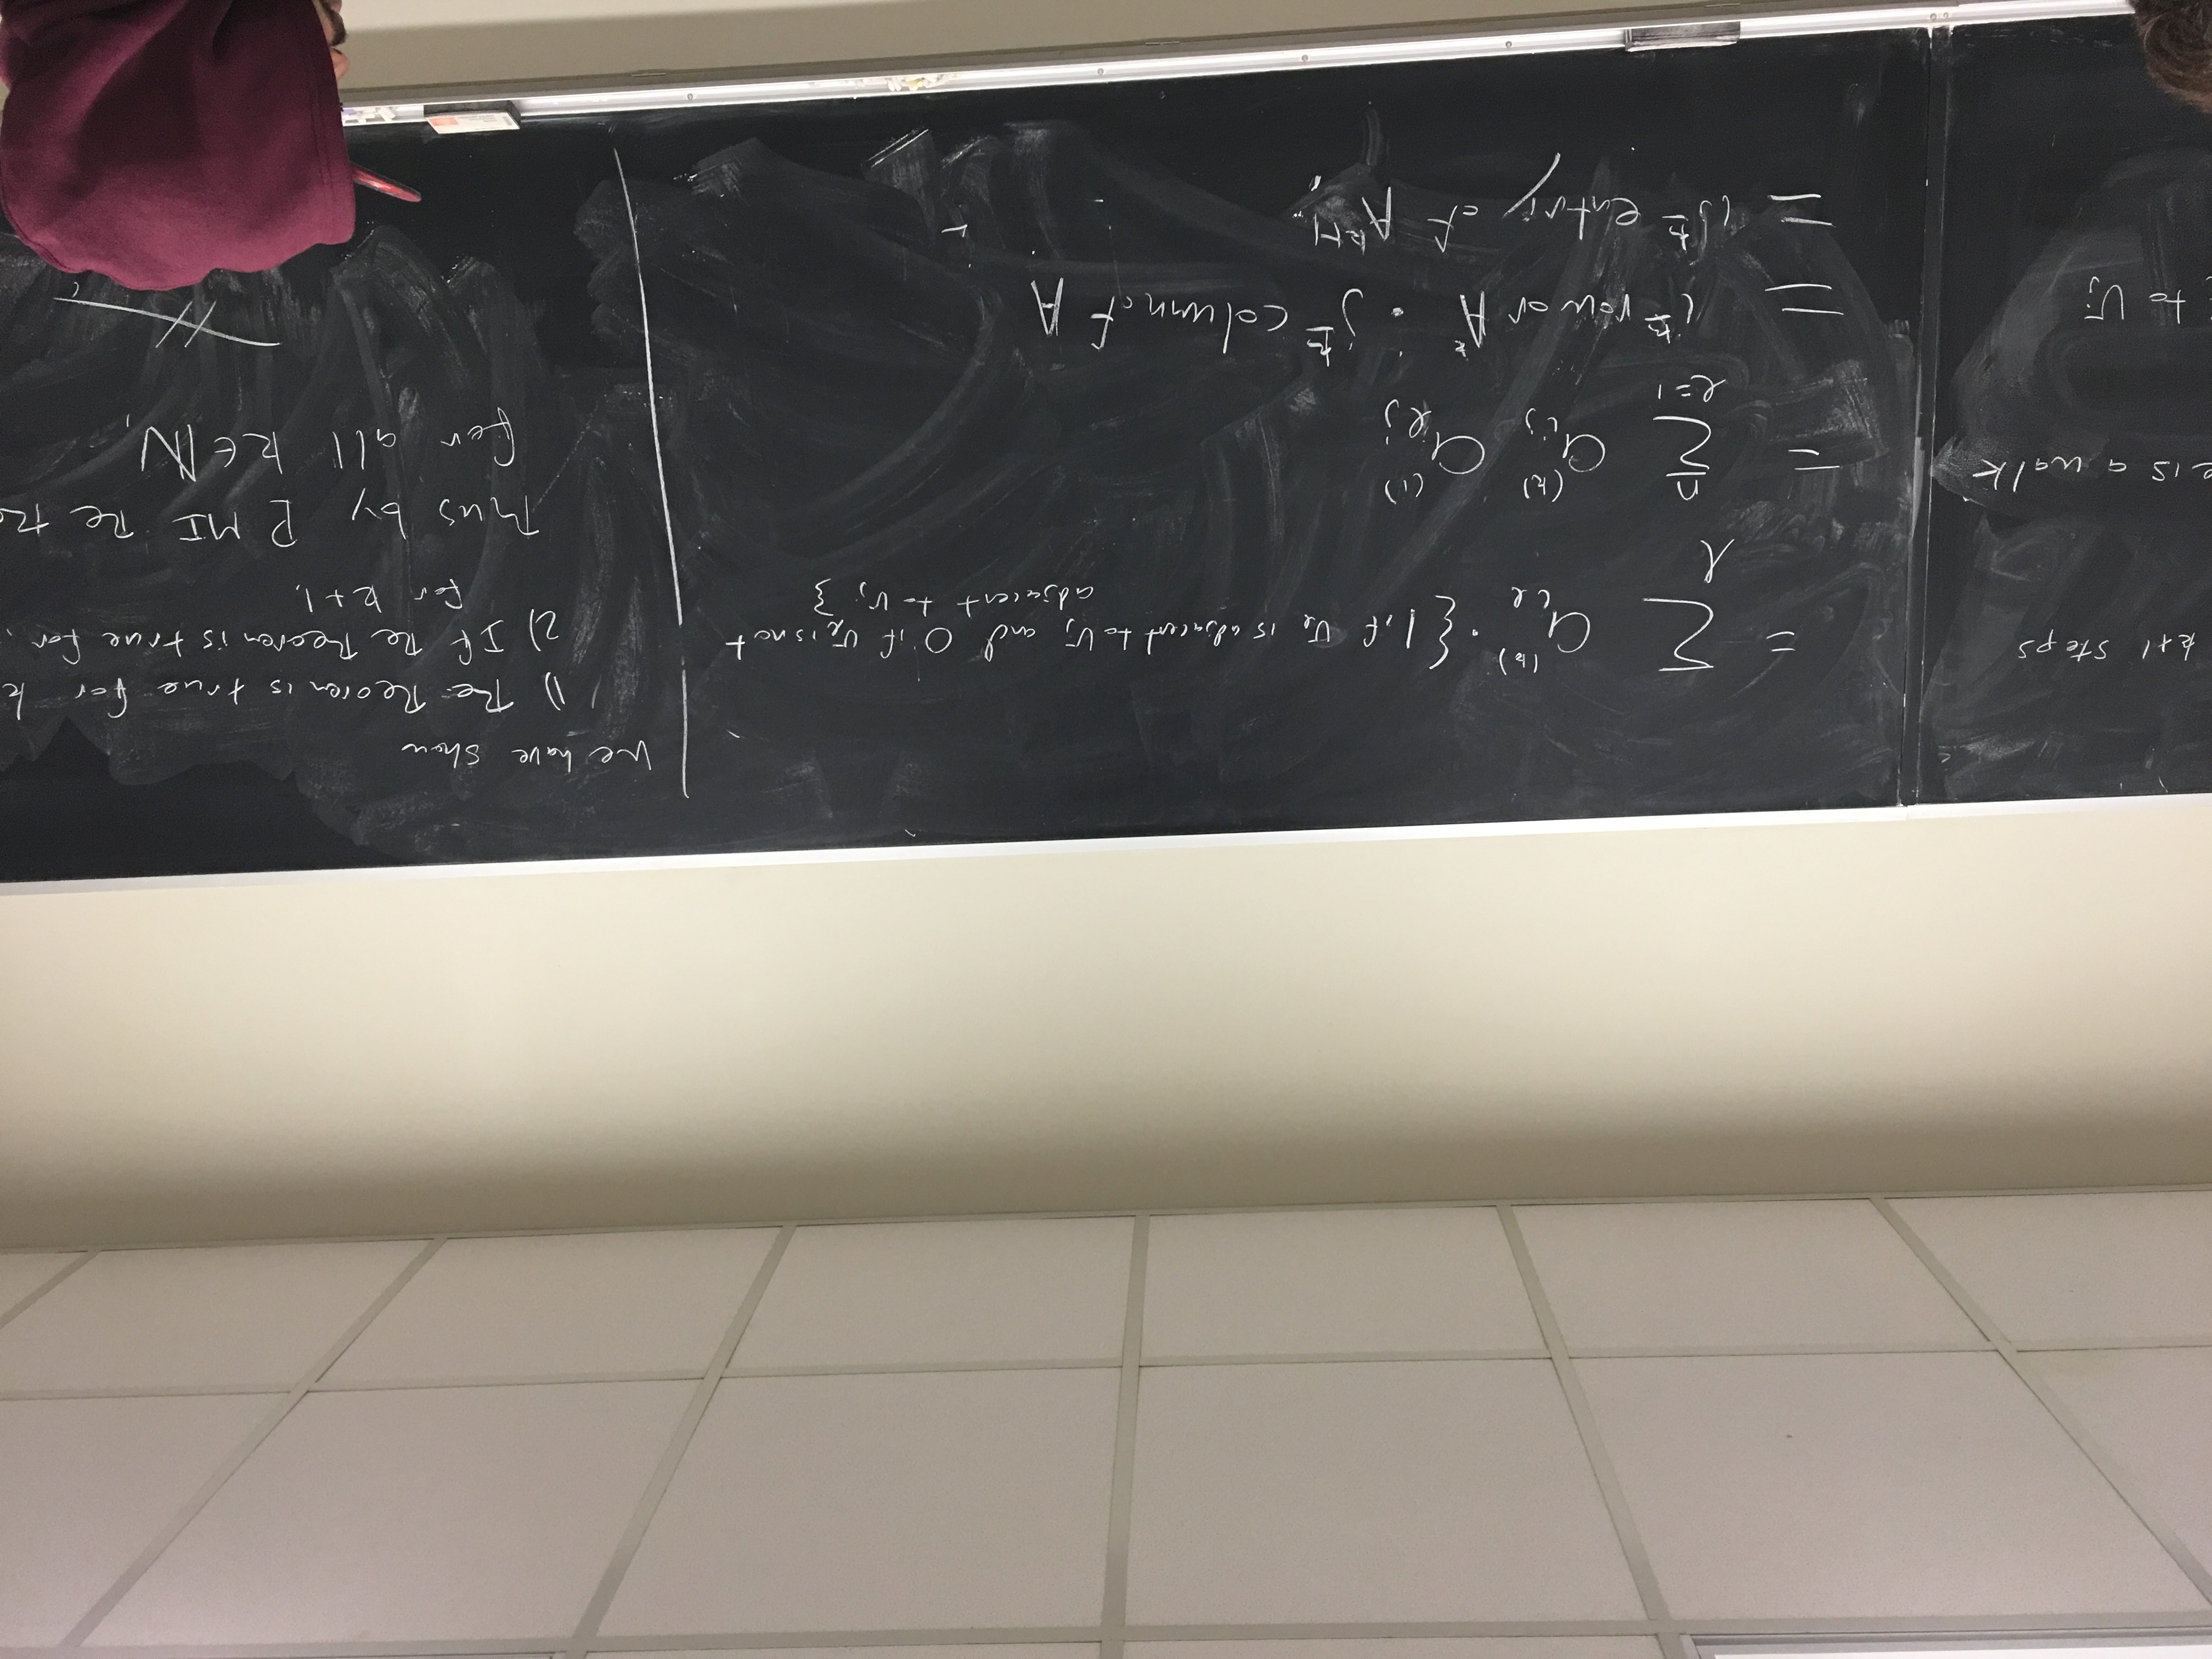 k+1 steps
e is a walk
to v_j
= Σ_l a_{il}^{(k)} · { 1 if v_l is adjacent to v_j and 0 if v_l is not
adjacent to v_j }
= Σ_{l=1}^{n} a_{ij}^{(k)} a_{lj}^{(1)}
= i^{th} row or A^k · j^{th} column of A
= ij^{th} entry of A^{k+1}.
We have show
1) The Theorem is true for k
2) If the Theorem is true for
for k+1.
Thus by PMI the th
for all k ∈ ℕ.